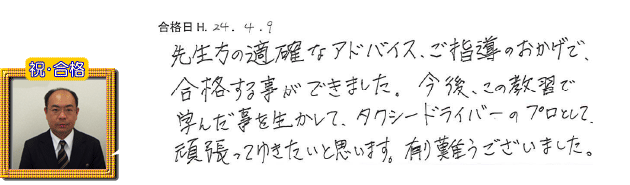 合格日 H. 24. 4. 9
先生方の適確なアドバイス、ご指導のおかげで、
合格する事ができました。今後、この教習で
学んだ事を生かして、タクシードライバーのプロとして、
頑張ってゆきたいと思います。有り難うございました。
祝・合格